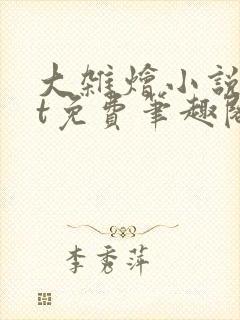 大雜燴小說
t免費筆趣閣
李秀萍